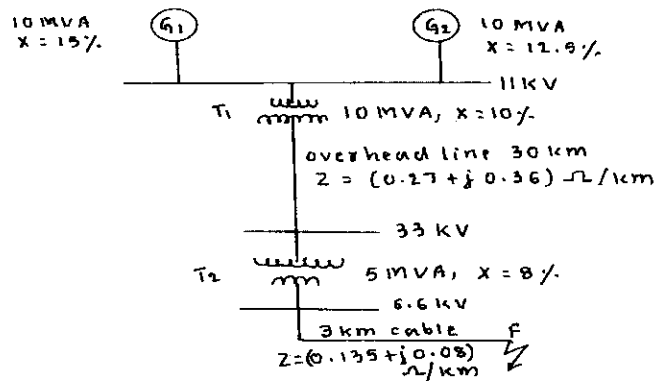 10 MVA
X = 15%
G1
G2
10 MVA
X = 12.5%
11KV
T1
10 MVA, X = 10%
overhead line 30 km
Z = (0.27 + j 0.36) Ω/km
33 KV
T2
5 MVA, X = 8%
6.6KV
3km cable
F
Z=(0.135+j0.08)
Ω/km